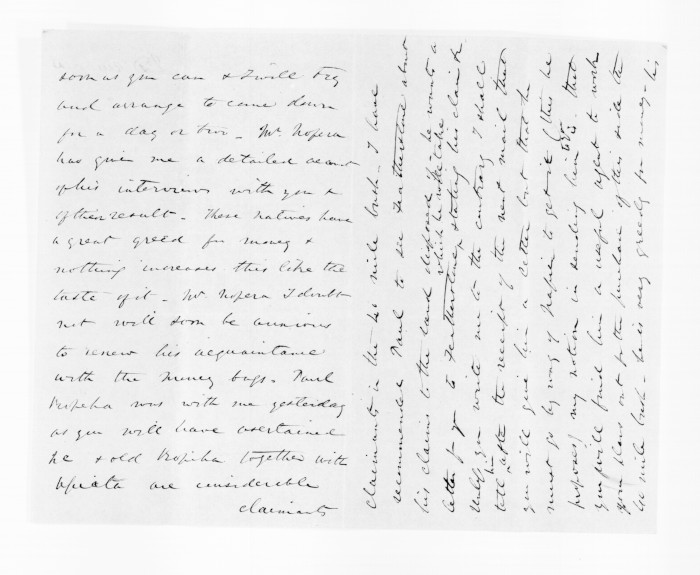 soon as you can & I will try
and arrange to come down
for a day or two - Mr. Nopera
has given me a detailed account
of his interviews with you &
of their result - These natives have
a great greed for money &
nothing increases this like the
taste of it - Mr Nopera I doubt
not will soon be anxious
to renew his acquaintance
with the money bags - Paul
Ropiha was with me yesterday
as you will have ascertained
he & old Ropiha together with
are considerable
claimants
claimants in the 40 mile bush - I have
recommended Paul to see Featherston about
his claims to the land disposed of - he wants a
which he will take
letter from you to Featherston, stating his claim &
unless you write me to the contrary I shall
tell him after the receipt of the next mail that
you will give him a letter but that he
must go by way of Napier to get it (this he
proposes) my notion in sending him to you is that
you will find him a useful agent to work
your plans out for the purchase of this side the
40 mile bush - he is very greedy for money - his